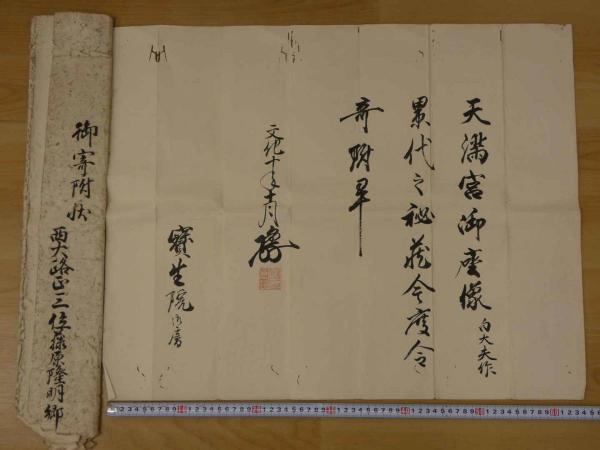 天満宮御座像 白大夫作
累代之秘蔵今度令
寄附畢
文化十年十一月
寶生院御房
御寄附状
西大路正三位藤原隆明郷